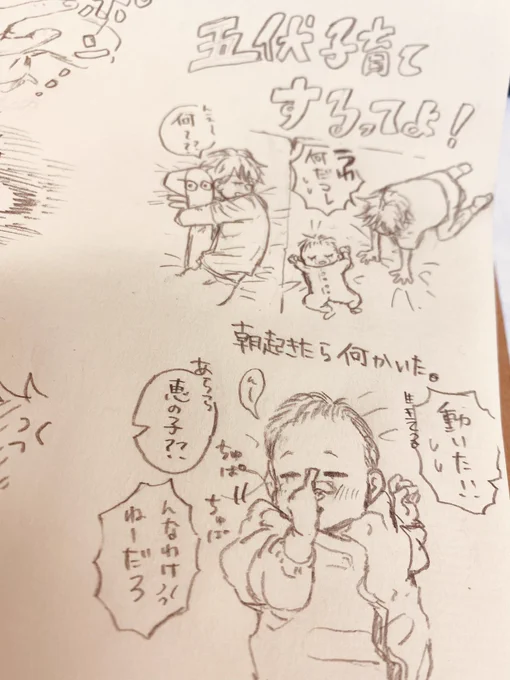 五伏子育て
するってよ！
んえー
何て??
うわ
何だっし
朝起きたら何かいた。
動いた!!
生きてる
んー
あらら
恵の子??
ちゅぱ
ちゅぱ
んなわけ
ねーだろ